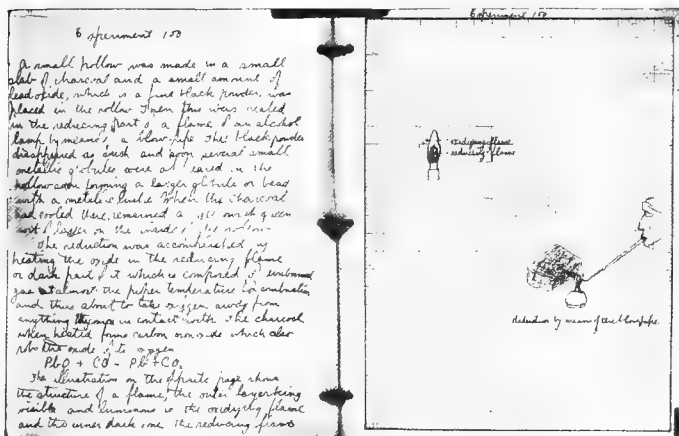 Experiment 150
A small hollow was made in a small
slab of charcoal and a small amount of
lead oxide, which is a fine black powder, was
placed in the hollow Then this was heated
in the reducing part of a flame of an alcohol
lamp by means of a blow-pipe The black powder
disappeared as such and soon several small
metallic globules were in the
hollow soon forming a larger globule or bead
with a metallic lustre When the charcoal
had cooled there remained a green
sort of layer on the inside of the hollow
The reduction was accomplished by
heating the oxide in the reducing flame
or dark part of it which is composed of unburned
gas at almost the proper temperature for combustion
and thus about to take oxygen away from
anything in contact with The charcoal
when heated forms carbon monoxide which also
robs the oxide of its oxygen
PbO + CO = Pb + CO2
The illustration on the opposite page shows
the structure of a flame, the outer layer being
visible and luminous is the oxidying flame
and the inner dark one the reducing flame
Experiment 150
oxidying flame
reducing flame
Reduction by means of the blowpipe.